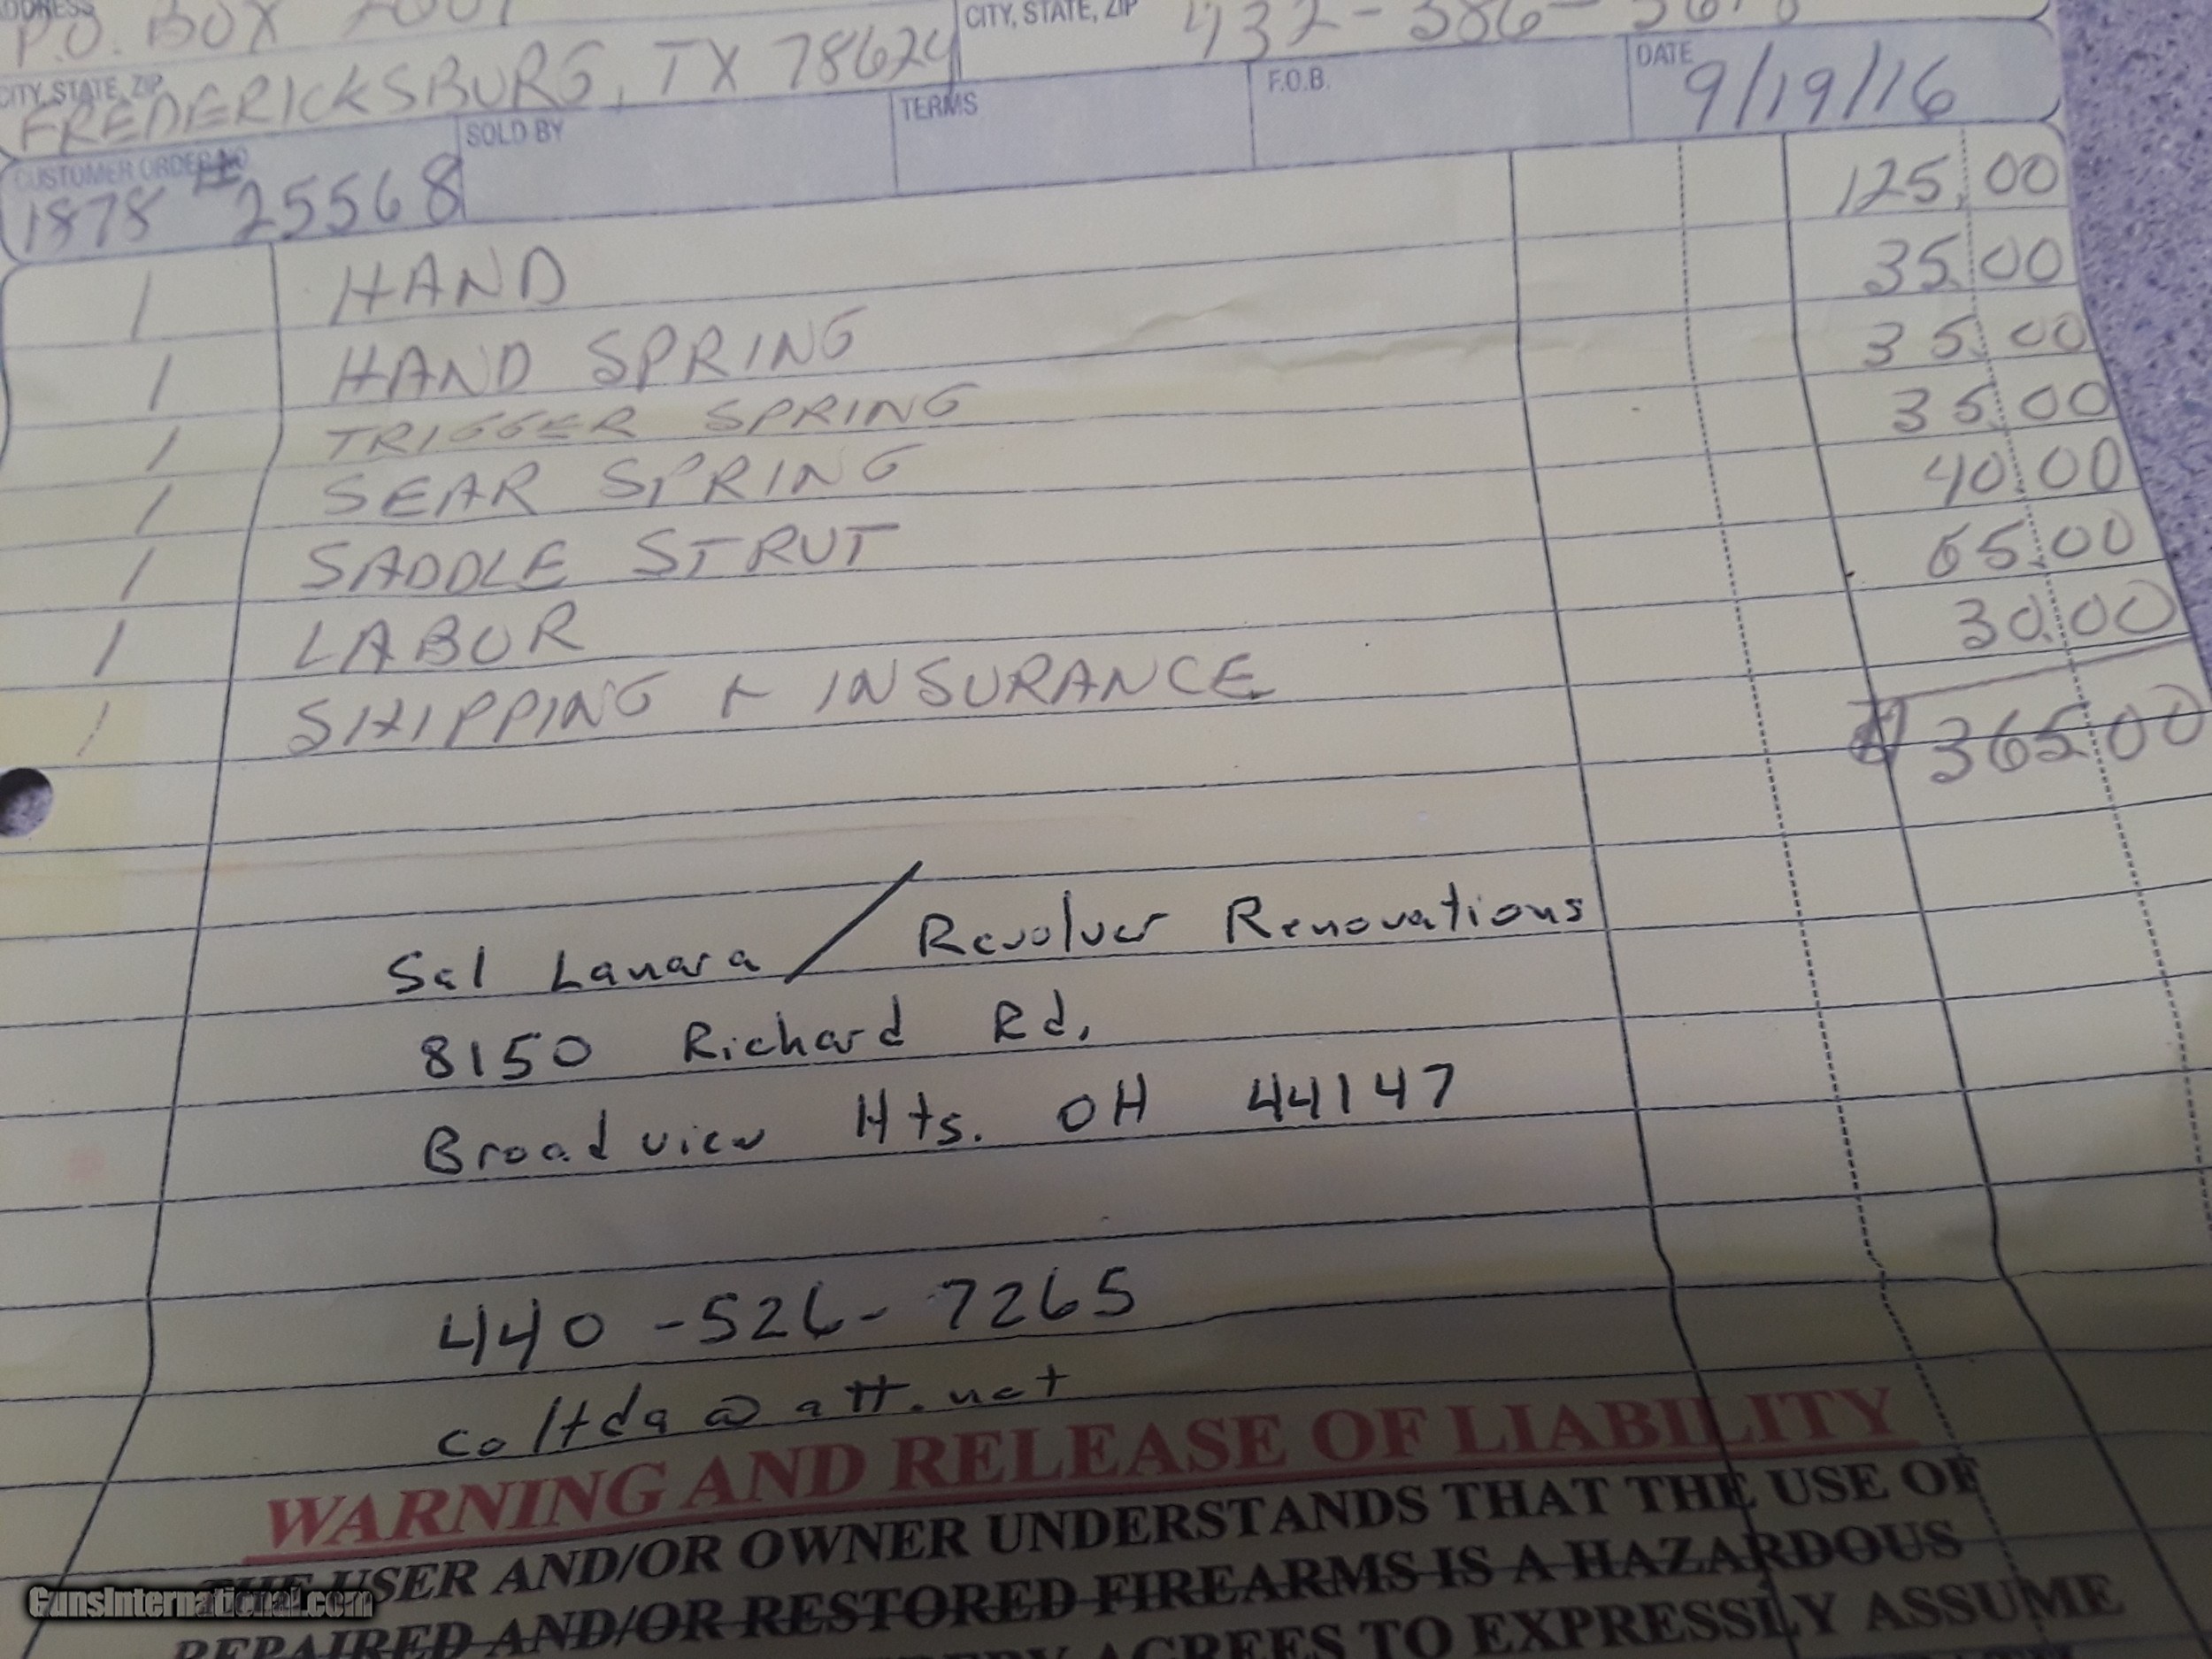 ADDRESS
P.O. BOX
CITY, STATE, ZIP
FREDERICKSBURG, TX 78624
CITY, STATE, ZIP
432-386-
CUSTOMER ORDER NO
1878 #25568
SOLD BY
TERMS
F.O.B.
DATE
9/19/16
1 HAND 125.00
1 HAND SPRING 35.00
1 TRIGGER SPRING 35.00
1 SEAR SPRING 35.00
1 SADDLE STRUT 40.00
1 LABOR 65.00
1 SHIPPING + INSURANCE 30.00
$365.00
Sal Lanara / Revolver Renovations
8150 Richard Rd.
Broadview Hts. OH 44147
440-526-7265
coltda@att.net
WARNING AND RELEASE OF LIABILITY
THE USER AND/OR OWNER UNDERSTANDS THAT THE USE OF
REPAIRED AND/OR RESTORED FIREARMS IS A HAZARDOUS
AGREES TO EXPRESSLY ASSUME
GunsInternational.com